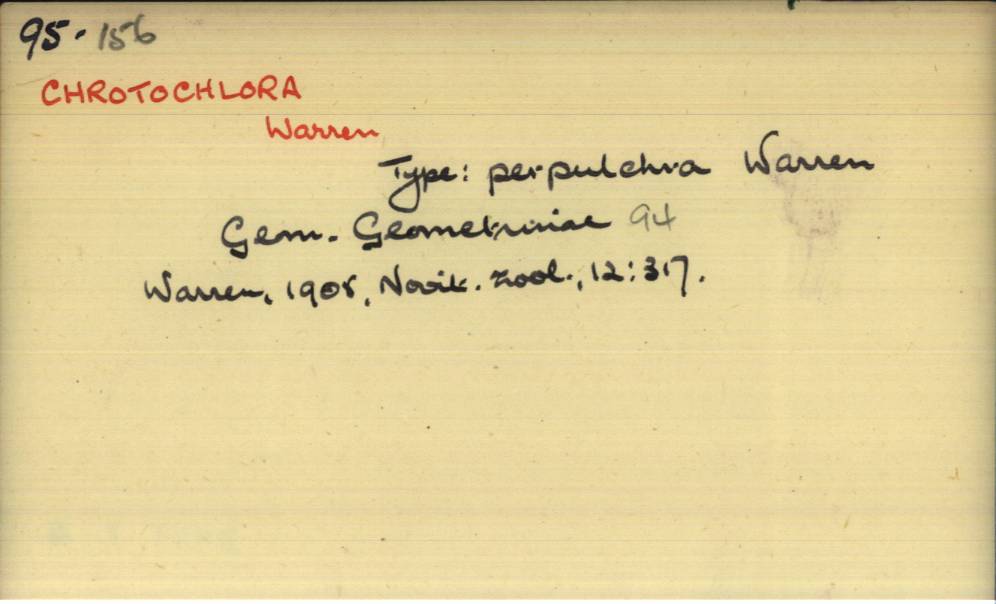 95. 156
CHROTOCHLORA
Warren
Type: perpulchra Warren
Geom. Geometrinae 94
Warren, 1905, Novit. zool., 12:317.